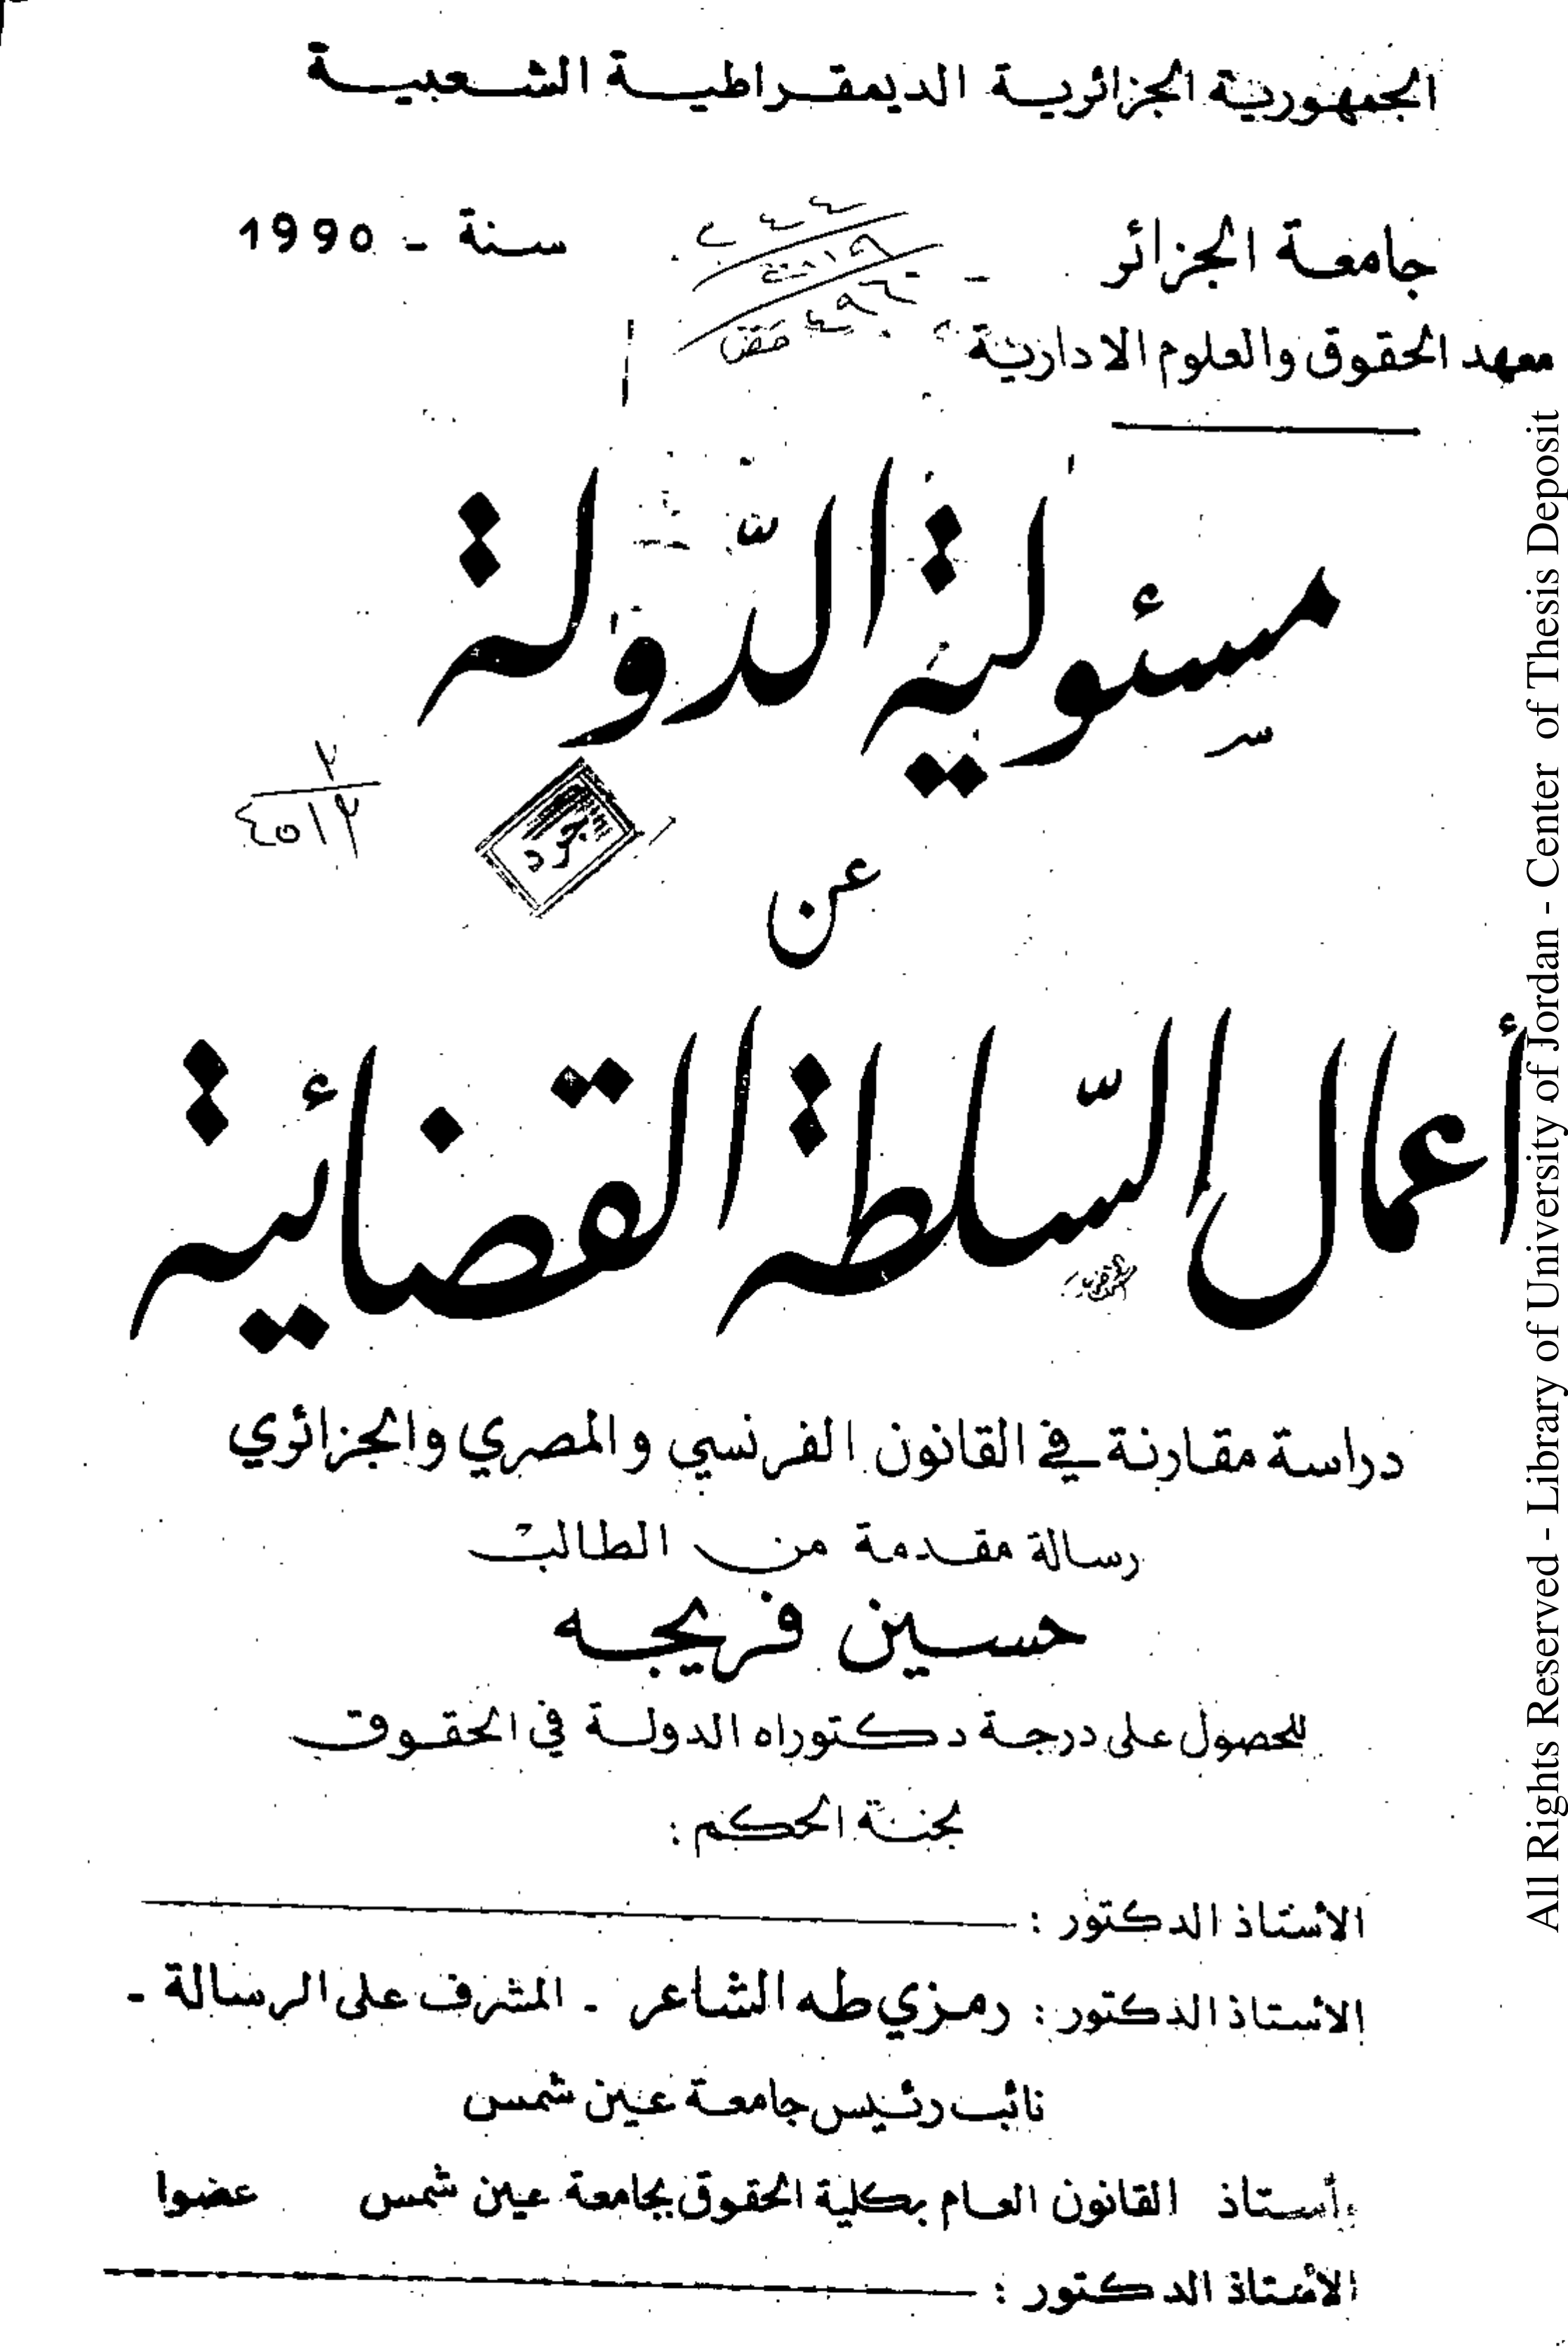 الجمهورية الجزائرية الديمقراطية الشعبية
جامعة الجزائر سنة - 1990
معهد الحقوق والعلوم الادارية
مسئولية الدّولة
٢
٤٥١٢
جرد
عن
أعمال السّلطة القضائية
دراسة مقارنة في القانون الفرنسي والمصري والجزائري
رسالة مقدمة من الطالب
حسين فريجه
للحصول على درجة دكتوراه الدولة في الحقوق
لجنة الحكم :
الأستاذ الدكتور :
الأستاذ الدكتور : رمزي طه الشاعر - المشرف على الرسالة -
نائب رئيس جامعة عين شمس
وأستاذ القانون العام بكلية الحقوق بجامعة عين شمس عضوا
الأستاذ الدكتور :
All Rights Reserved - Library of University of Jordan - Center of Thesis Deposit